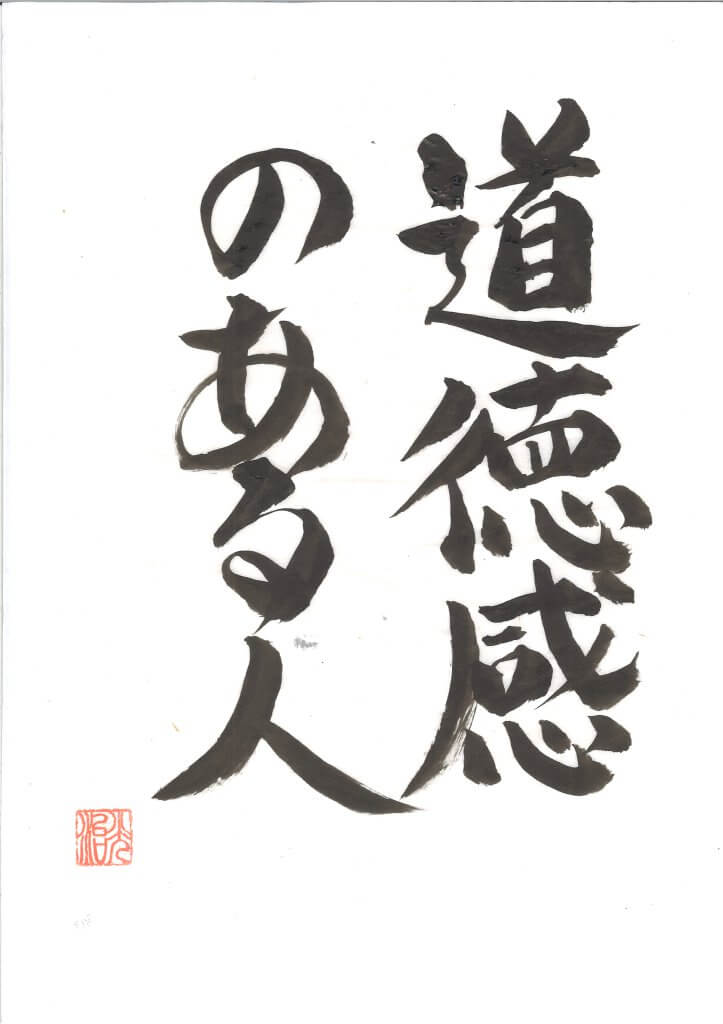 道徳感
のある人